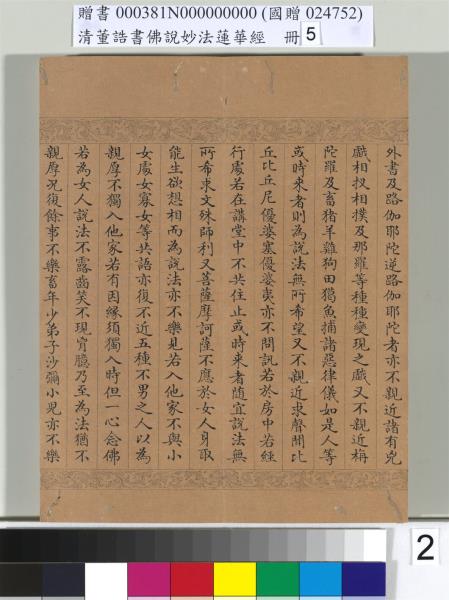 贈書 000381N000000000 (國贈 024752)
清董誥書佛說妙法蓮華經 冊 5
外書及路伽耶陀逆路伽耶陀者亦不親近諸有兇
戲相扠相撲及那羅等種種變現之戲又不親近旃
陀羅及畜猪羊雞狗田獵魚捕諸惡律儀如是人等
或時來者則為說法無所希望又不親近求聲聞比
丘比丘尼優婆塞優婆夷亦不問訊若於房中若經
行處若在講堂中不共住止或時來者隨宜說法無
所希求文殊師利又菩薩摩訶薩不應於女人身取
能生欲想相而為說法亦不樂見若入他家不與小
女處女寡女等共語亦復不近五種不男之人以為
親厚不獨入他家若有因緣須獨入時但一心念佛
若為女人說法不露齒笑不現胷臆乃至為法猶不
親厚況復餘事不樂畜年少弟子沙彌小兒亦不樂
2